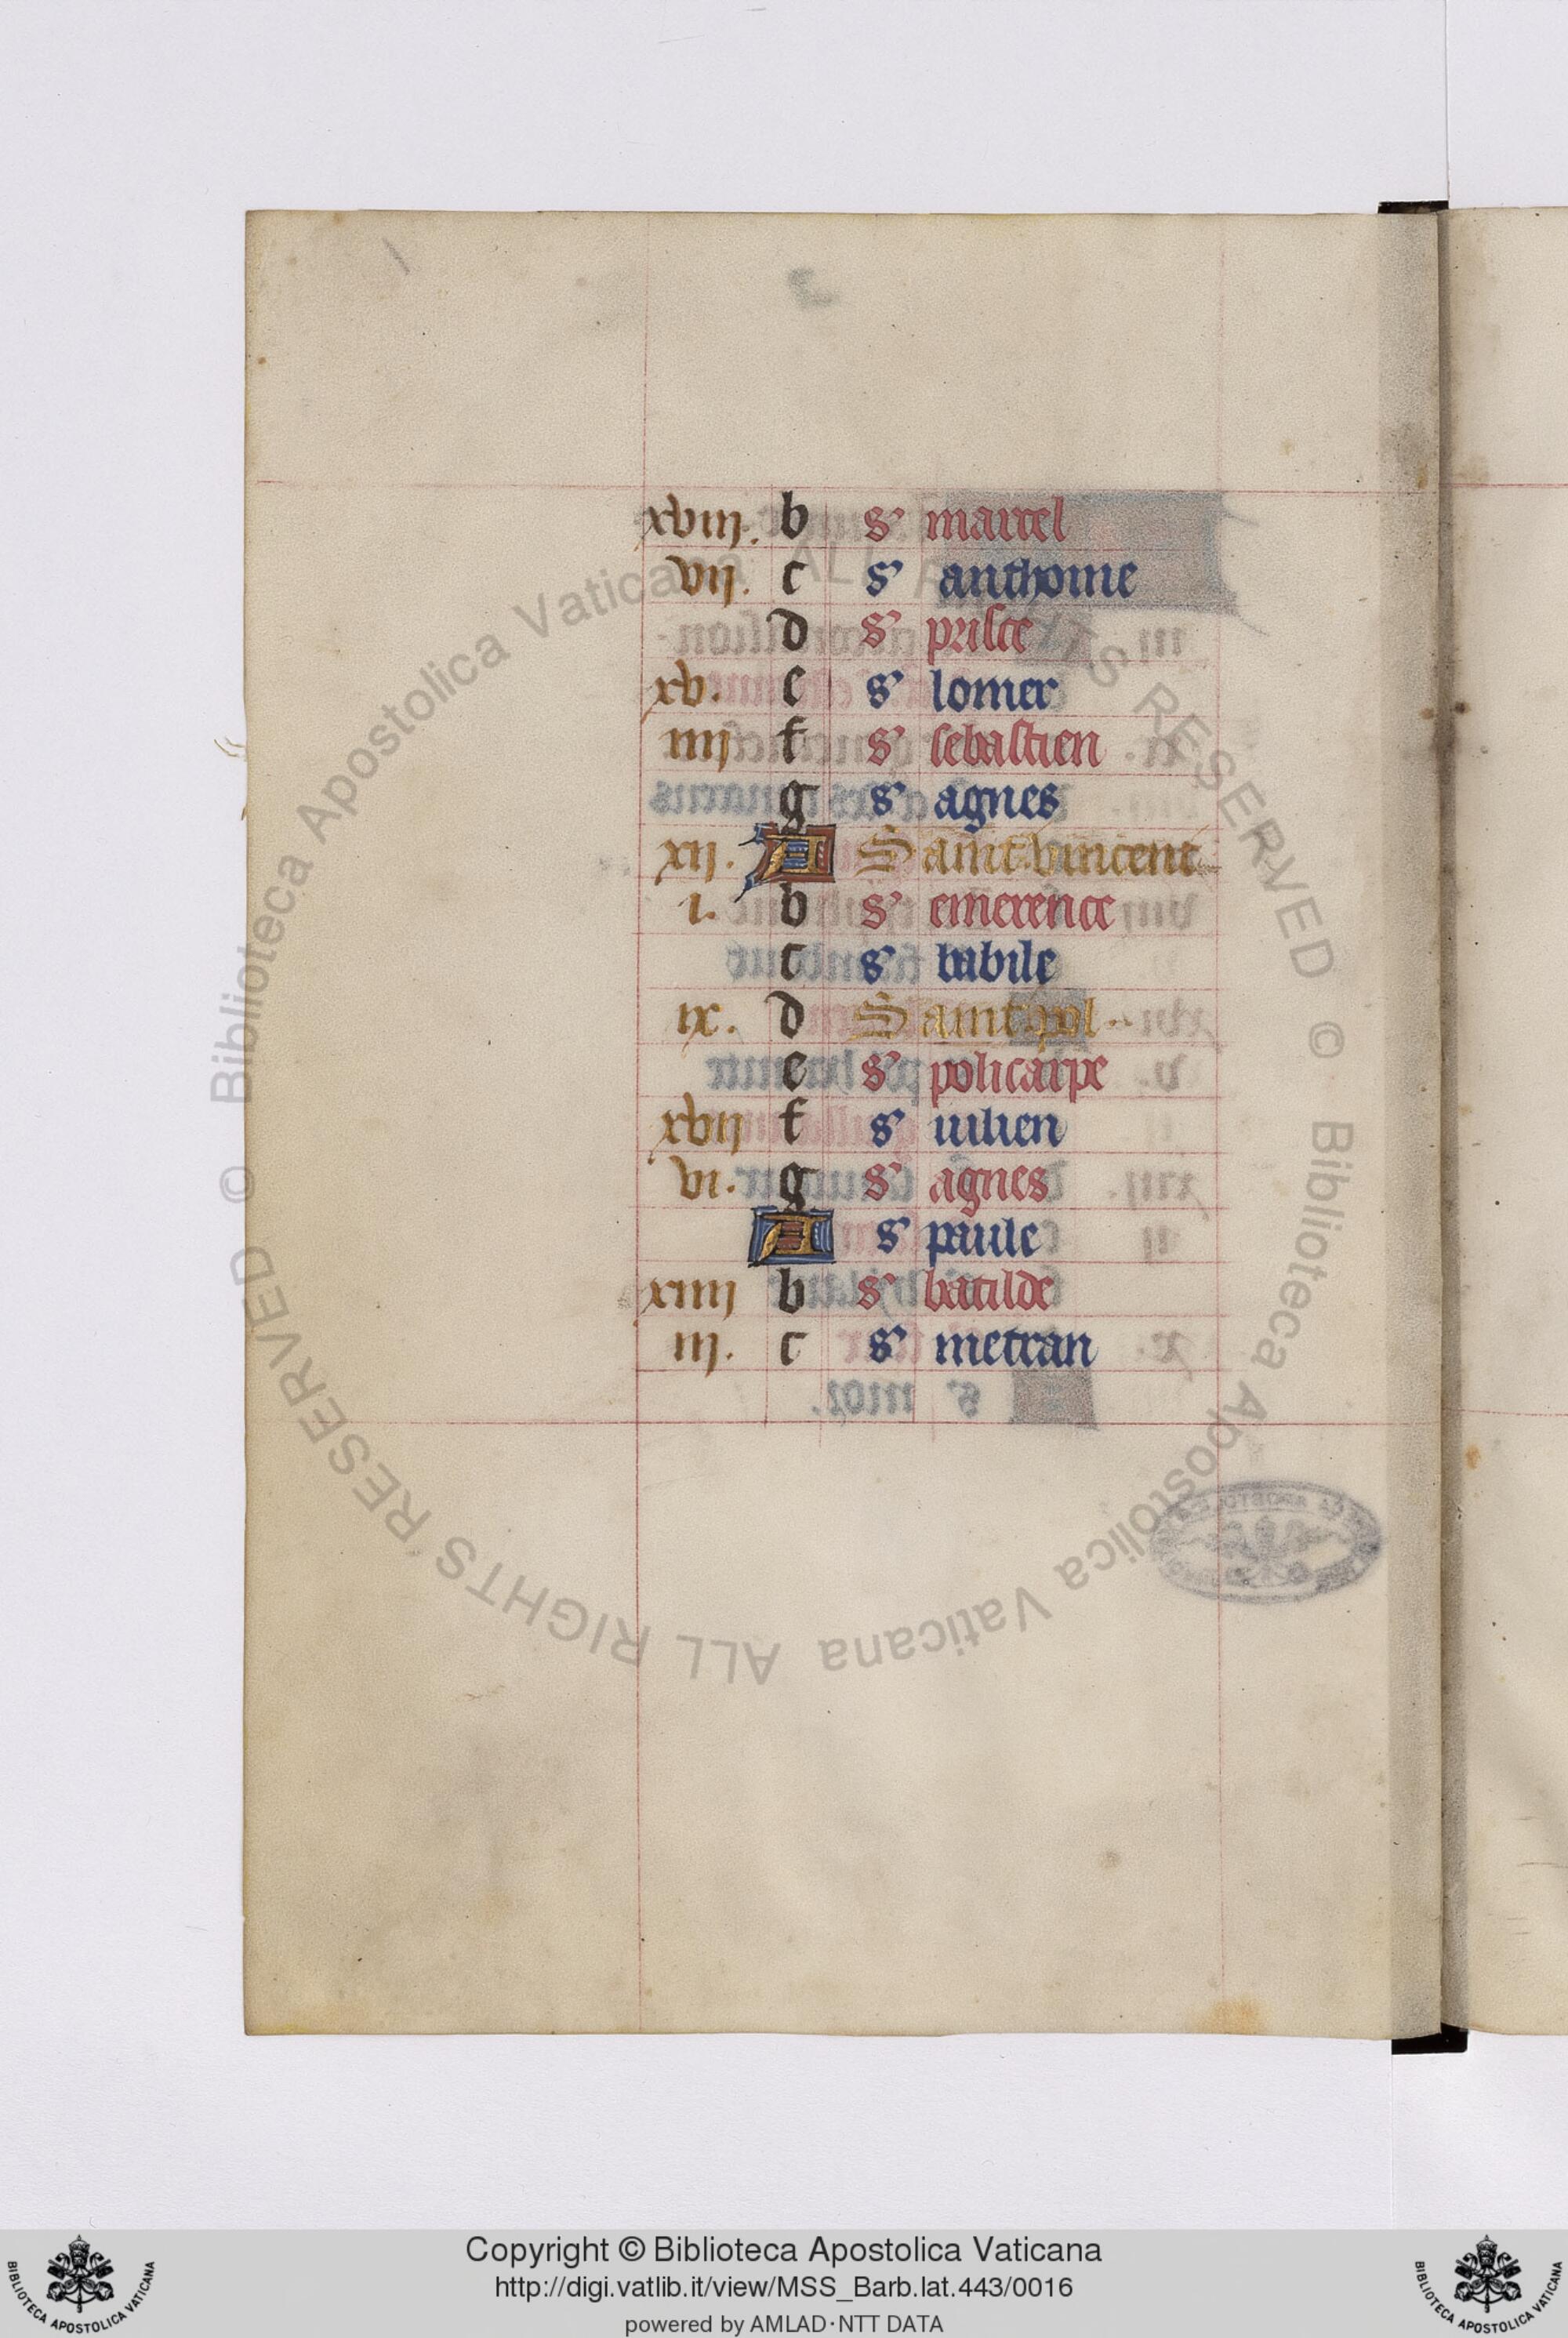 xviij. b s' marcel
vij. c s' anthoine
d s' prisce
xv. e s' lomer
iiij f s' sebastien
g s' agnes
xij. A Saint vincent
i. b s' emerence
c s' babile
ix. d Saint pol
e s' policarpe
xvij f s' iulien
vi. g s' agnes
A s' paule
xiiij b s' batilde
iij. c s' metran
© Biblioteca Apostolica Vaticana ALL RIGHTS RESERVED © Biblioteca Apostolica Vaticana ALL RIGHTS RESERVED
Copyright © Biblioteca Apostolica Vaticana
http://digi.vatlib.it/view/MSS_Barb.lat.443/0016
powered by AMLAD·NTT DATA
BIBLIOTECA APOSTOLICA VATICANA
BIBLIOTECA APOSTOLICA VATICANA